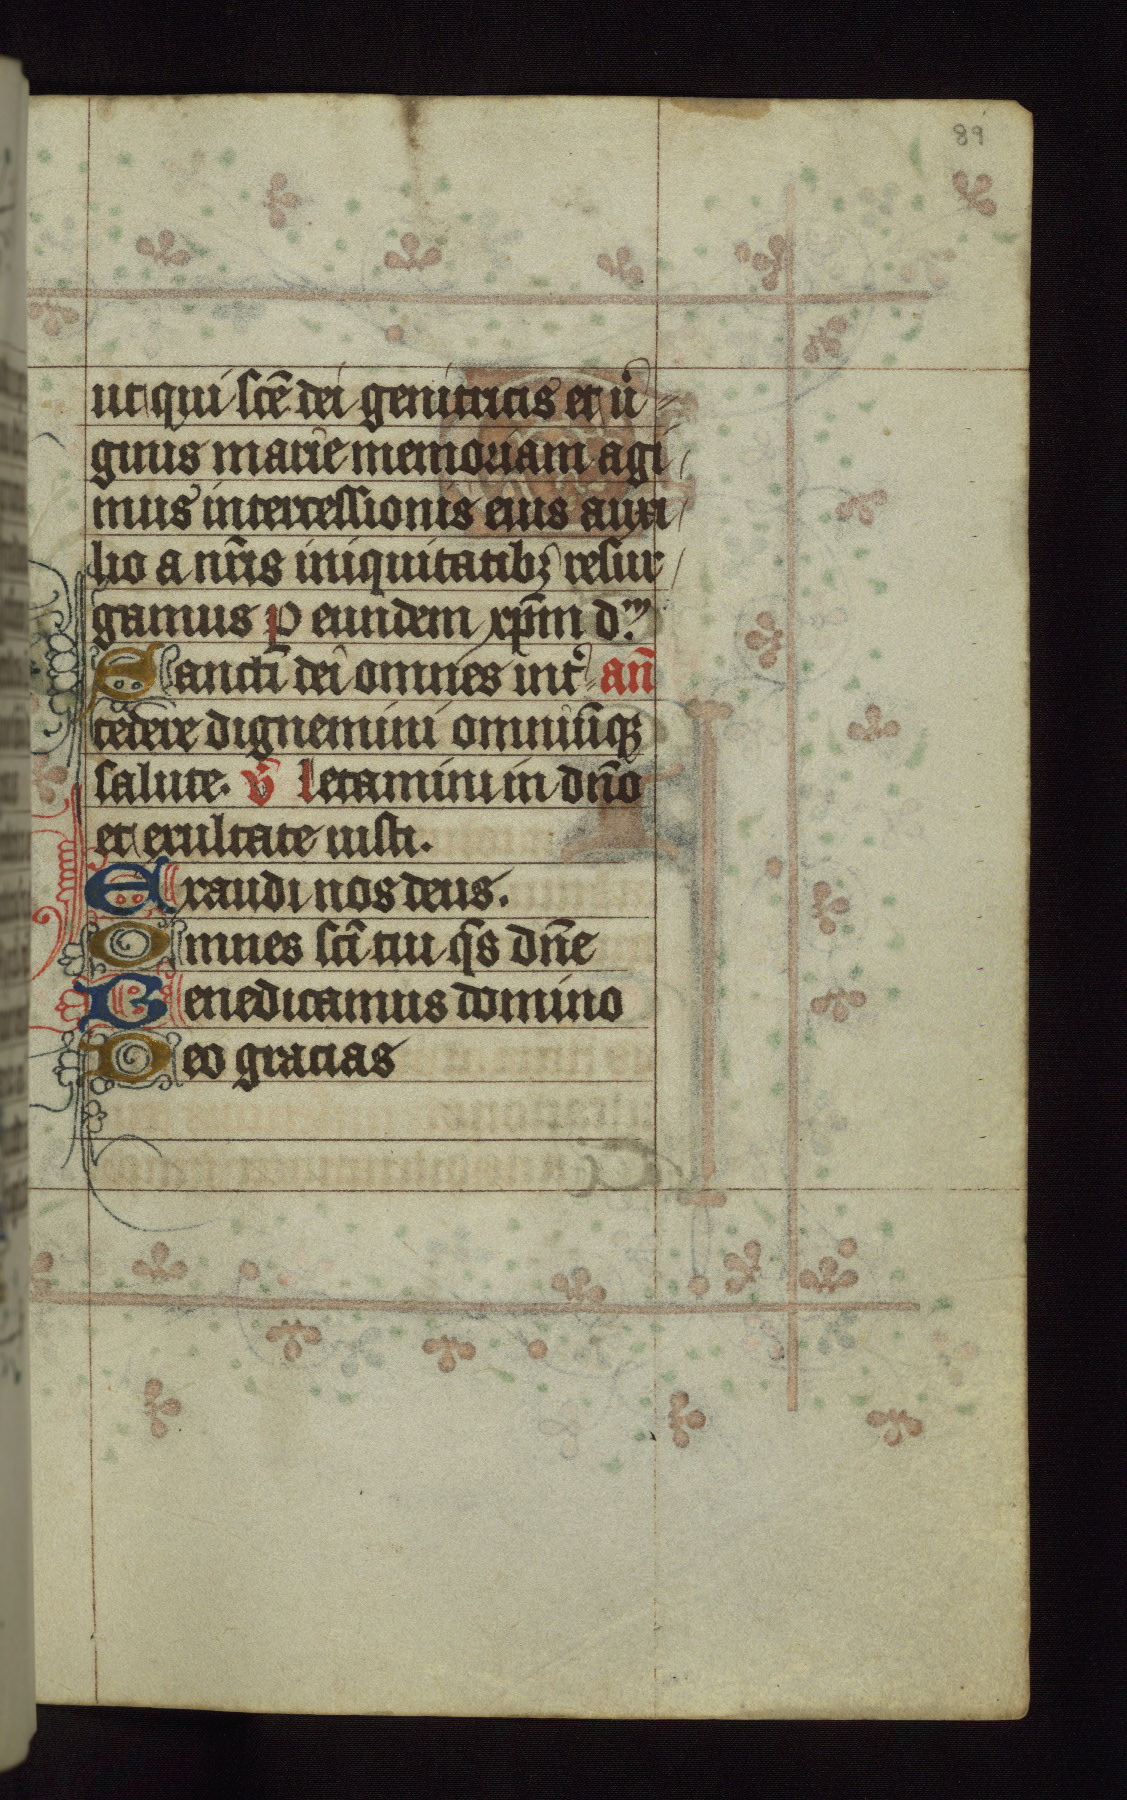 89
ut qui scē dei genitricis et uͥ
ginis marie memoriam agi
mus intercessionis eius auxi
lio a nr̄is iniquitatibꝫ resur
gamus p eundem xp̄m dᵐ.
Sancti dei omnes int̓ an̄
cedere dignemini omniūqꝫ
salute. v̄ letamini in dn̄o
et exultate iusti.
Exaudi nos deus.
Omnes sc̄i tui q̄s dn̄e
Benedicamus domino
Deo gracias